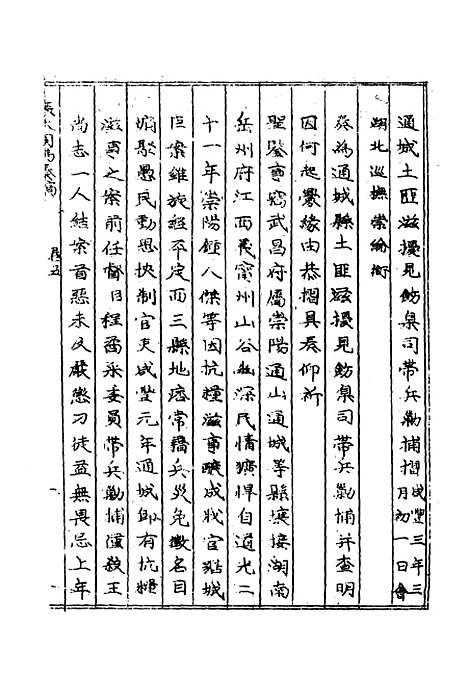 通城土匪滋擾見飭臬司帶兵勦捕摺咸豐三年三月初一日會
湖北巡撫崇綸銜
奏為通城縣土匪滋擾見飭臬司帶兵勦捕并查明
因何起釁緣由恭摺具奏仰祈
聖鑒事竊武昌府屬崇陽通山通城等縣壤接湖南
岳州府江西義寧州山谷幽深民情獷悍自道光二
十一年崇陽鍾人傑等因抗糧滋事釀成戕官踞城
巨案雖旋經平定而三縣地痞常藉兵災免徵名目
煽聚愚民動思挾制官吏咸豐元年通城即有抗糧
滋事之案前任督臣程矞采委員帶兵勦捕僅殺王
尚志一人結案首惡未及嚴懲刁徒益無畏忌上年
張大司馬奏稿
卷五
一